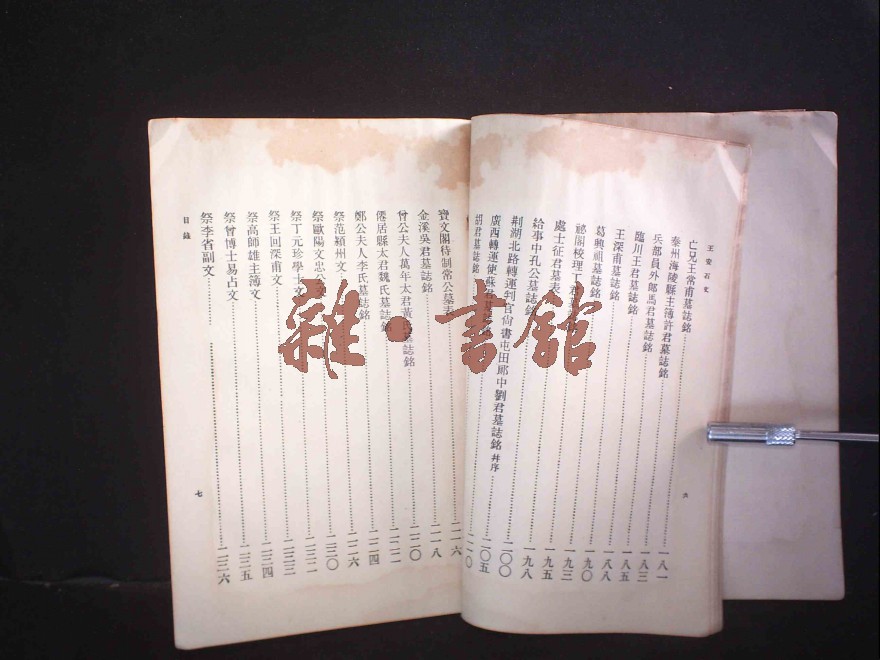 王安石文
亡兄王常甫墓誌銘 一八一
泰州海陵縣主簿許君墓誌銘 一八三
兵部員外郎馬君墓誌銘 一八五
臨川王君墓誌銘 一八八
王深甫墓誌銘 一九〇
葛興祖墓誌銘 一九三
祕閣校理丁君墓
處士征君墓表 一九五
給事中孔公墓誌銘 一九八
荆湖北路轉運判官尙書屯田郎中劉君墓誌銘 幷序 二〇〇
廣西轉運使蘇君墓 二〇五
胡君墓誌銘 二一〇
六
寶文閣待制常公墓表 二一六
金溪吳君墓誌銘 二一八
曾公夫人萬年太君黃氏墓誌銘 二二〇
僊居縣太君魏氏墓誌銘 二二二
鄭公夫人李氏墓誌銘 二二四
祭范潁州文 二二六
祭歐陽文忠公文 二三〇
祭丁元珍學士文 二三二
祭王回深甫文 二三三
祭高師雄主簿文 二三四
祭曾博士易占文 二三五
祭李省副文 二三六
目錄
七
雜·書館